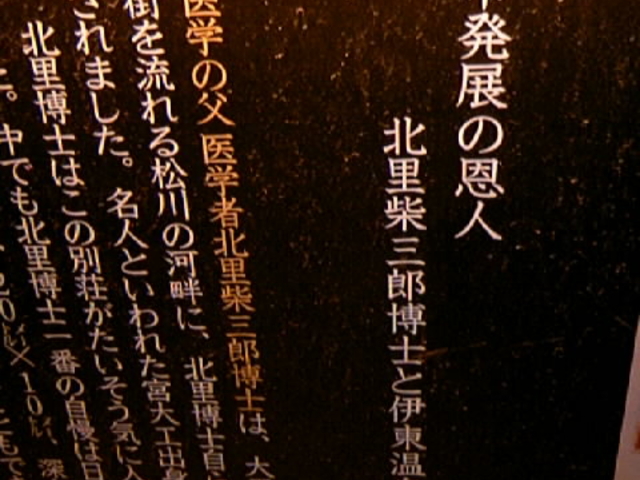 発展の恩人
北里柴三郎博士と伊東温
医学の父 医学者北里柴三郎博士は、大
街を流れる松川の河畔に、北里博士自
されました。名人といわれた宮大工出身
北里博士はこの別荘がたいそう気に入
た。中でも北里博士一番の自慢は日
×10㍍、深